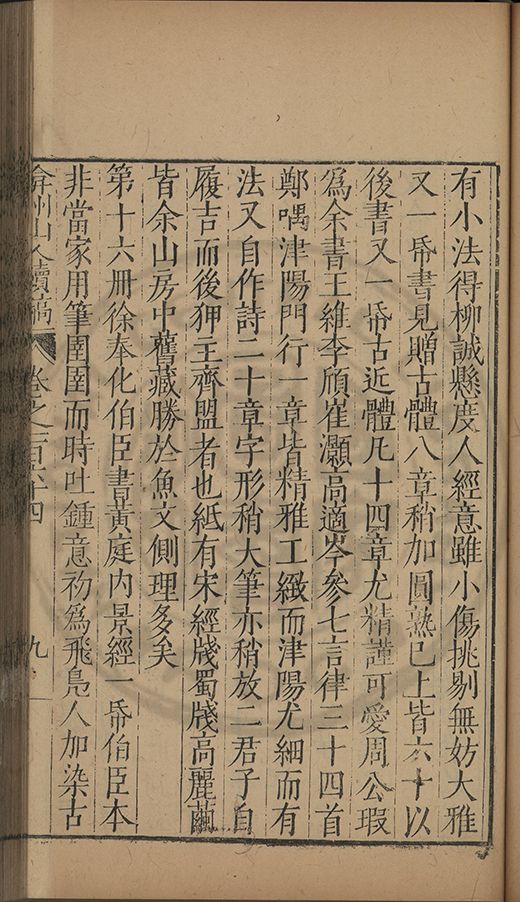 有小法得柳誠懸度人經意雖小傷挑剔無妨大雅
又一帋書見贈古體八章稍加圓熟已上皆六十以
後書又一帋古近體凡十四章尤精謹可愛周公瑕
爲余書王維李頎崔灝高適岑參七言律三十四首
鄭嵎津陽門行一章皆精雅工緻而津陽尤細而有
法又自作詩二十章字形稍大筆亦稍放二君子自
履吉而後狎主齊盟者也紙有宋經牋蜀牋高麗繭
皆余山房中舊藏勝於魚文側理多矣
第十六冊徐奉化伯臣書黃庭內景經一帋伯臣本
非當家用筆圉圉而時吐鍾意初爲飛鳧人加染古
弇州山人續稿 卷之一百六十四 九